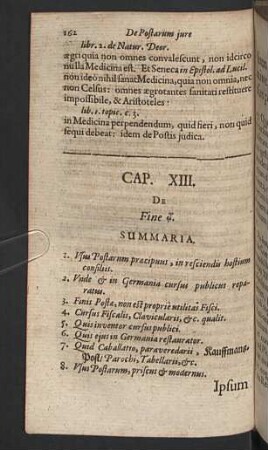 262 De Postarum jure
libr. 2. de Natur. Deor.
ægri quia non omnes convalescunt, non idcirco
nulla Medicina est. Et Seneca in Epistol. ad Lucil.
non ideò nihil sanat Medicina, quia non omnia, nec
non Celsus: omnes ægrotantes sanitati restituere
impossibile, & Aristoteles:
lib. 1. topic. c. 3.
in Medicina perpendendum, quid fieri, non quid
sequi debeat: idem de Postis judica.
CAP. XIII.
DE
Fine
SUMMARIA.
1. Usus Postarum præcipuus, in resciendis hostium
consiliis.
2. Unde & in Germania cursus publicus repa-
ratus.
3. Finis Postæ, non est propriè utilitas Fisci.
4. Cursus Fiscalis, Clavicularis, &c. qualit.
5. Quis inventor cursus publici.
6. Quis ejus in Germania restaurator.
7. Quid Caballatio, paraveredarii, Kauffmans-
Post: Parochi, Tabellarii, &c.
8. Usus Postarum, priscus & modernus.
Ipsum